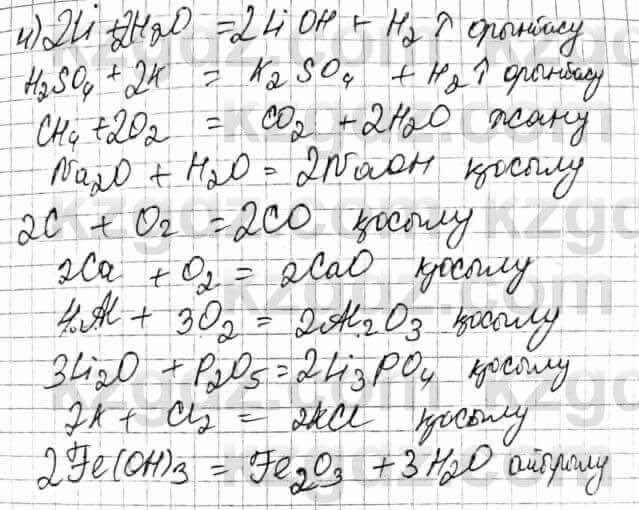 4) 2Li + 2H₂O = 2LiOH + H₂↑ орынбасу
H₂SO₄ + 2K = K₂SO₄ + H₂↑ орынбасу
CH₄ + 2O₂ = CO₂ + 2H₂O жану
Na₂O + H₂O = 2NaOH қосылу
2C + O₂ = 2CO қосылу
2Ca + O₂ = 2CaO қосылу
4Al + 3O₂ = 2Al₂O₃ қосылу
3Li₂O + P₂O₅ = 2Li₃PO₄ қосылу
2K + Cl₂ = 2KCl қосылу
2Fe(OH)₃ = Fe₂O₃ + 3H₂O айырылу